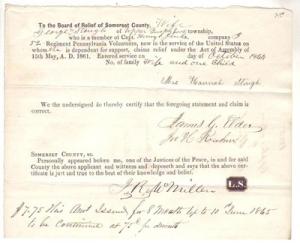 To the Board of Relief of Somerset County, Wife
George township,
who is a member of Capt. company
52 Regiment Pennsylvania Volunteers, now in the service of the United States on
whom she is dependent for support, claims relief under the Act of Assembly of
15th May, A. D. 1861. Given day of October 186
No. of family Wife and one Child
Mrs Hannah
We the undersigned do hereby certify that the foregoing statement and claim is
correct.
SOMERSET COUNTY, SS.
Personally appeared before me, one of the Justices of the Peace, in and for said
County the above applicant and witness and deposeth and says that the above cer-
tificate is just and true to the best of their knowledge and belief.
L.S.
$7.75 This Issued for 8 Month up to 10th June 1865
to be Continued at 75 cts per month